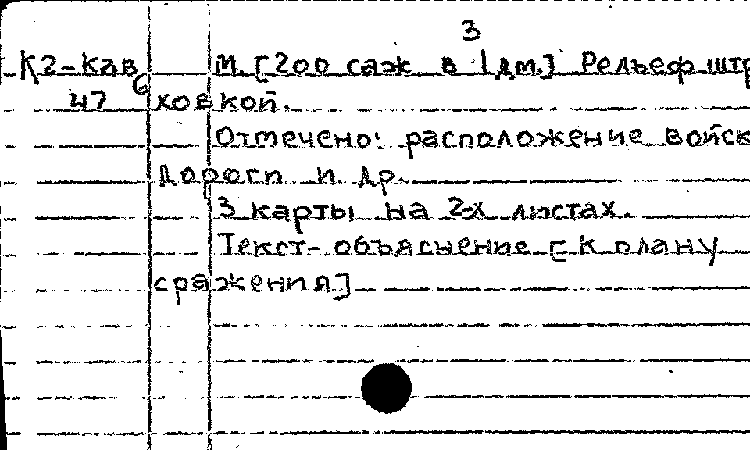 3
К2-Кав М. [200 саж в 1 дм.] Рельеф штр
6
47 ховкой.
Отмечено: расположение войск
дороги и др.
3 карты на 2-х листах.
Текст-объяснение [к плану
сражения]